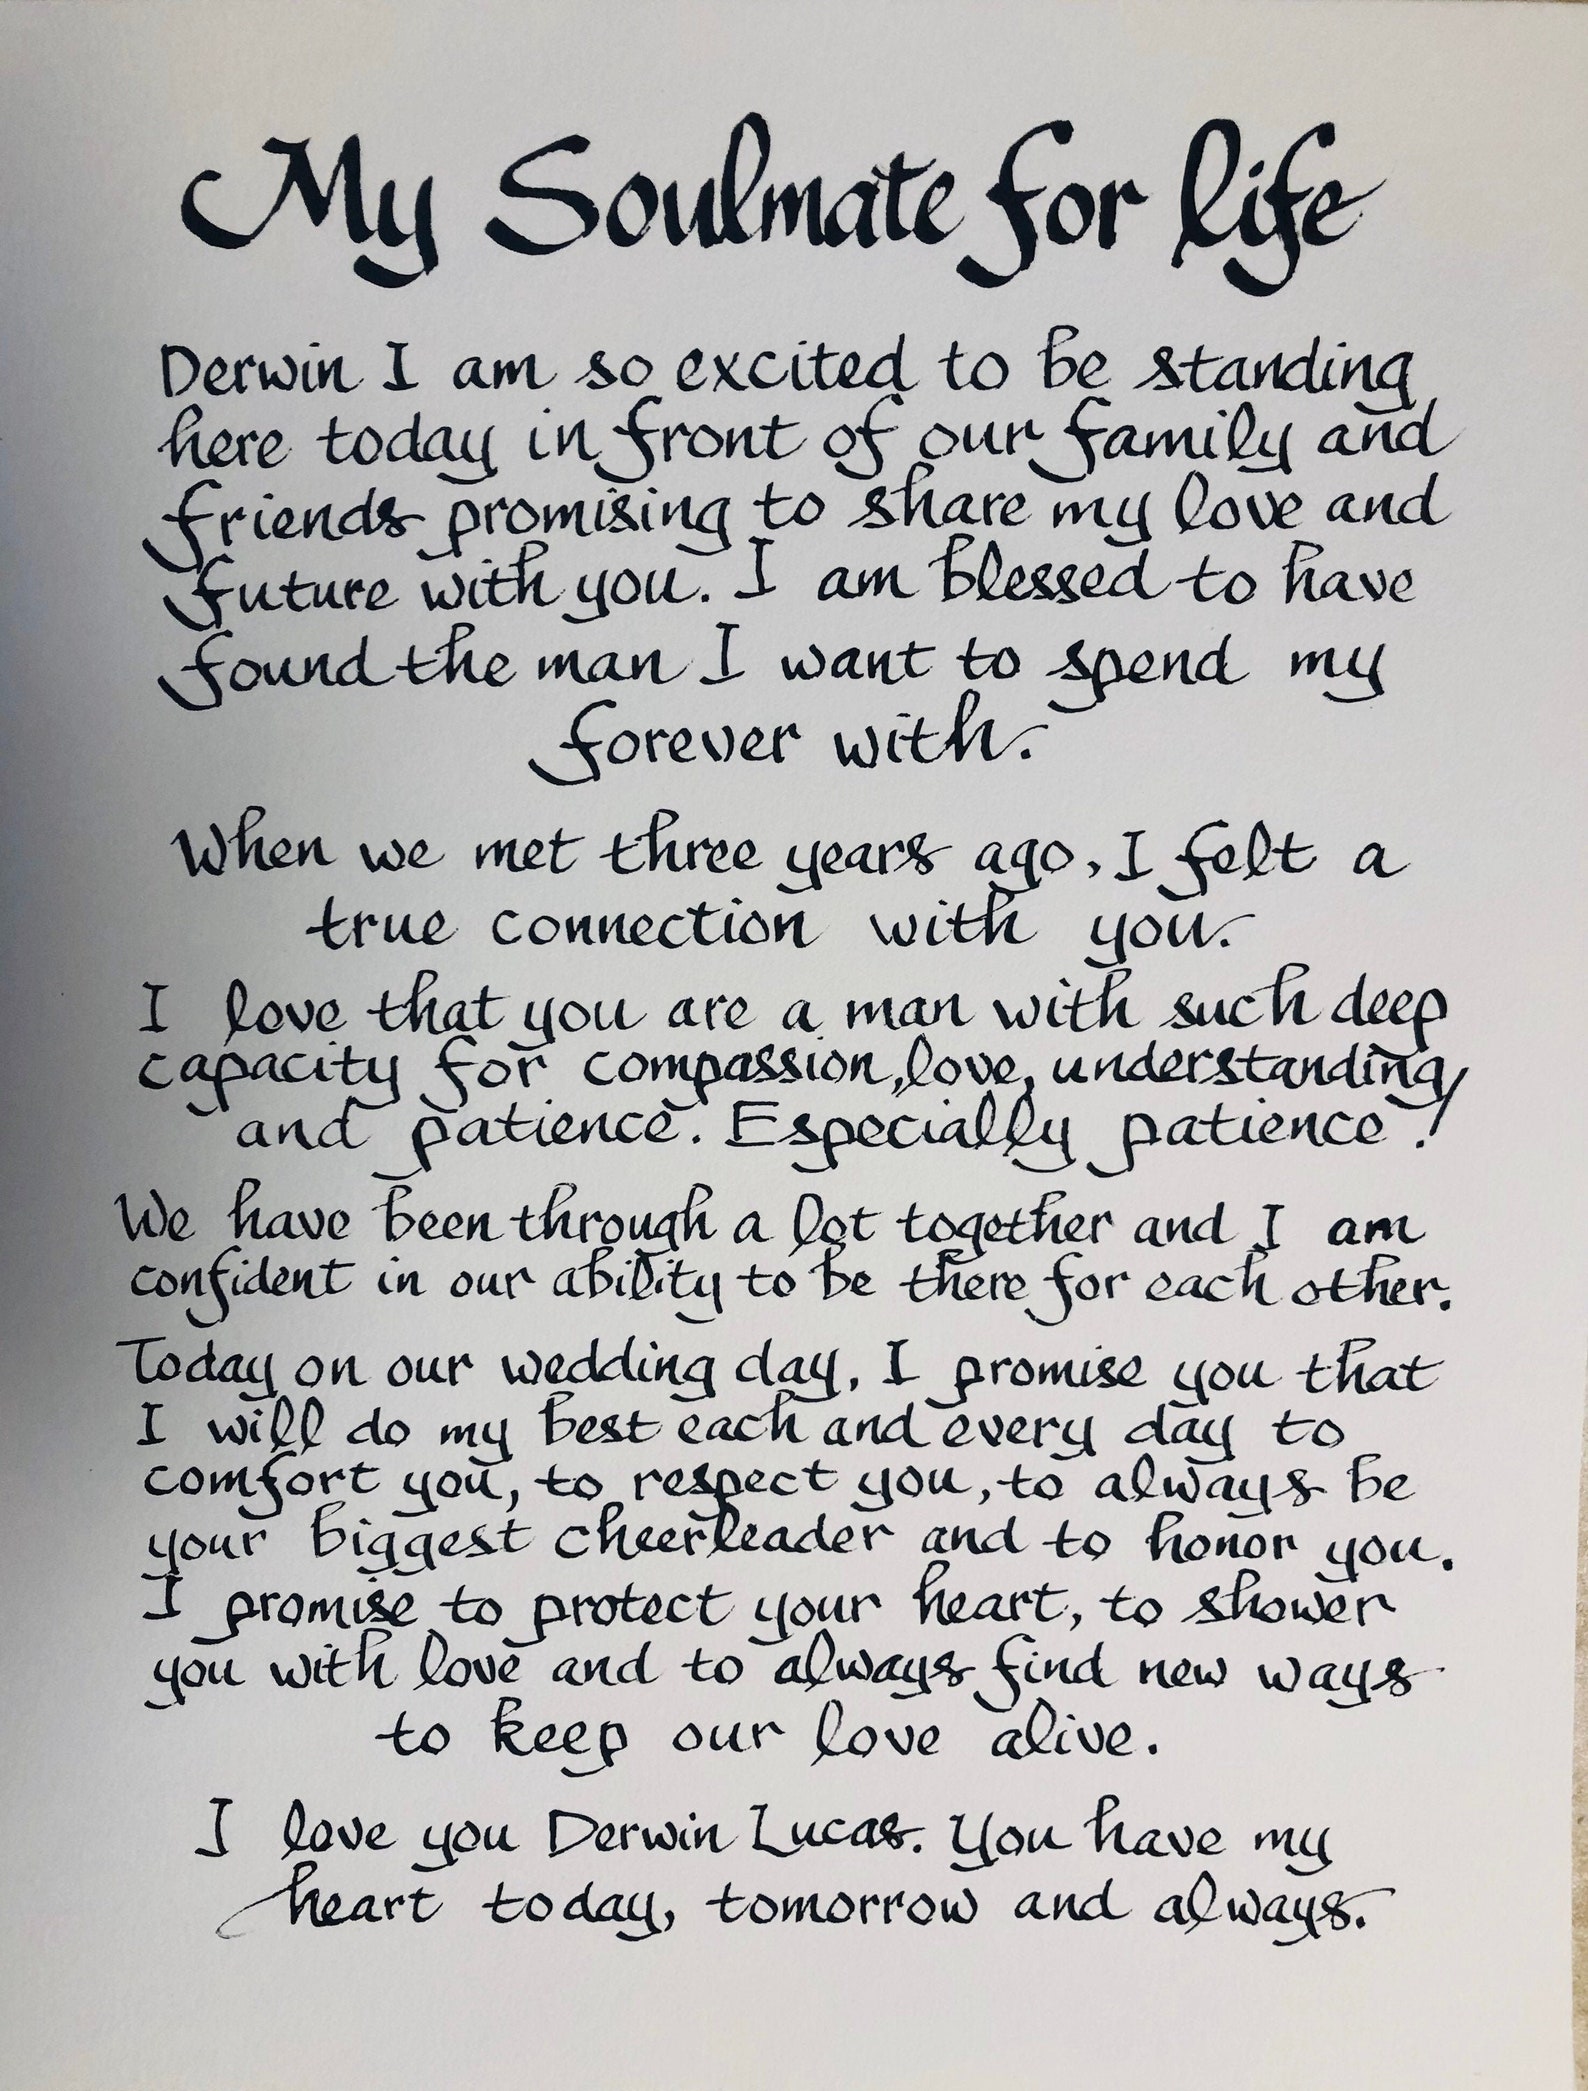 My Soulmate for life
Derwin I am so excited to be standing
here today in front of our family and
friends promising to share my love and
future with you. I am blessed to have
found the man I want to spend my
forever with.
When we met three years ago, I felt a
true connection with you.
I love that you are a man with such deep
capacity for compassion, love, understanding,
and patience. Especially patience!
We have been through a lot together and I am
confident in our ability to be there for each other.
Today on our wedding day, I promise you that
I will do my best each and every day to
comfort you, to respect you, to always be
your biggest cheerleader and to honor you.
I promise to protect your heart, to shower
you with love and to always find new ways
to keep our love alive.
I love you Derwin Lucas. You have my
heart today, tomorrow and always.